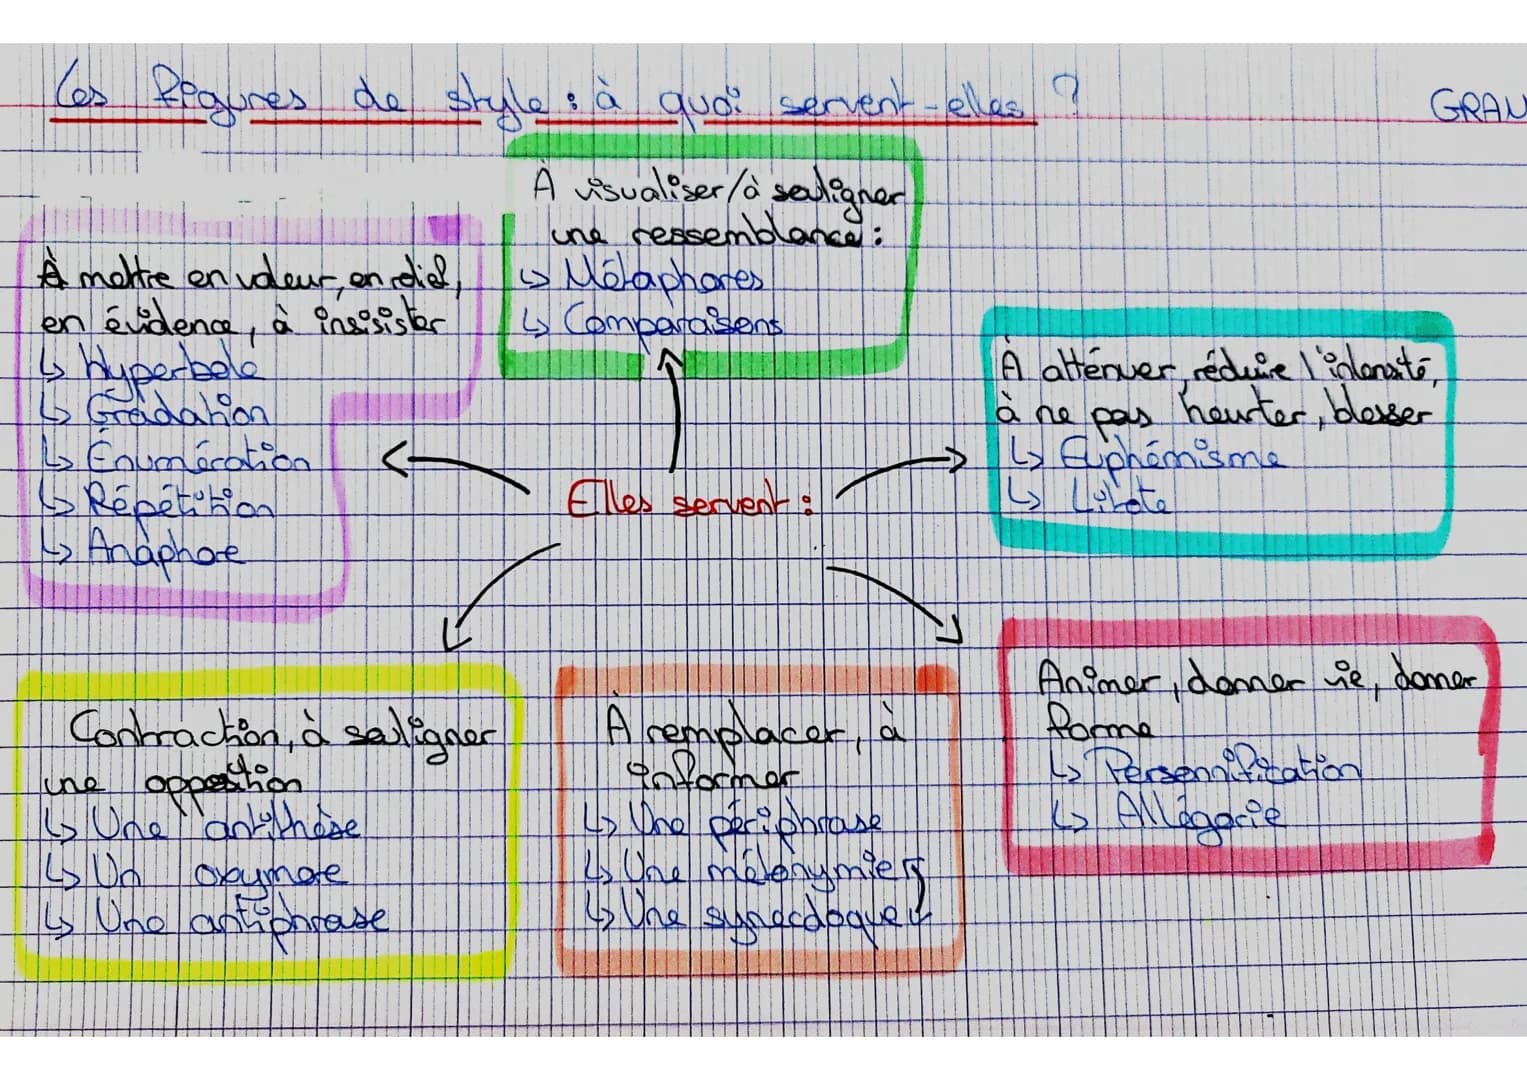 Les figures de style : à quoi servent-elles ?
GRAN
À visualiser/à souligner
une ressemblance :
↳ Métaphores
↳ Comparaisons
À mettre en valeur, en relief,
en évidence, à insisister
↳ Hyperbole
↳ Gradation
↳ Énumération
↳ Répétition
↳ Anaphore
À atténuer, réduire l'intensité,
à ne pas heurter, blesser
↳ Euphémisme
↳ Litote
Elles servent :
Contraction, à souligner
une opposition
↳ Une antithèse
↳ Un oxymore
↳ Une antiphrase
À remplacer, à
informer
↳ Une périphrase
↳ Une métonymie
↳ Une synecdoque
Animer, donner vie, donner
forme
↳ Personnification
↳ Allégorie